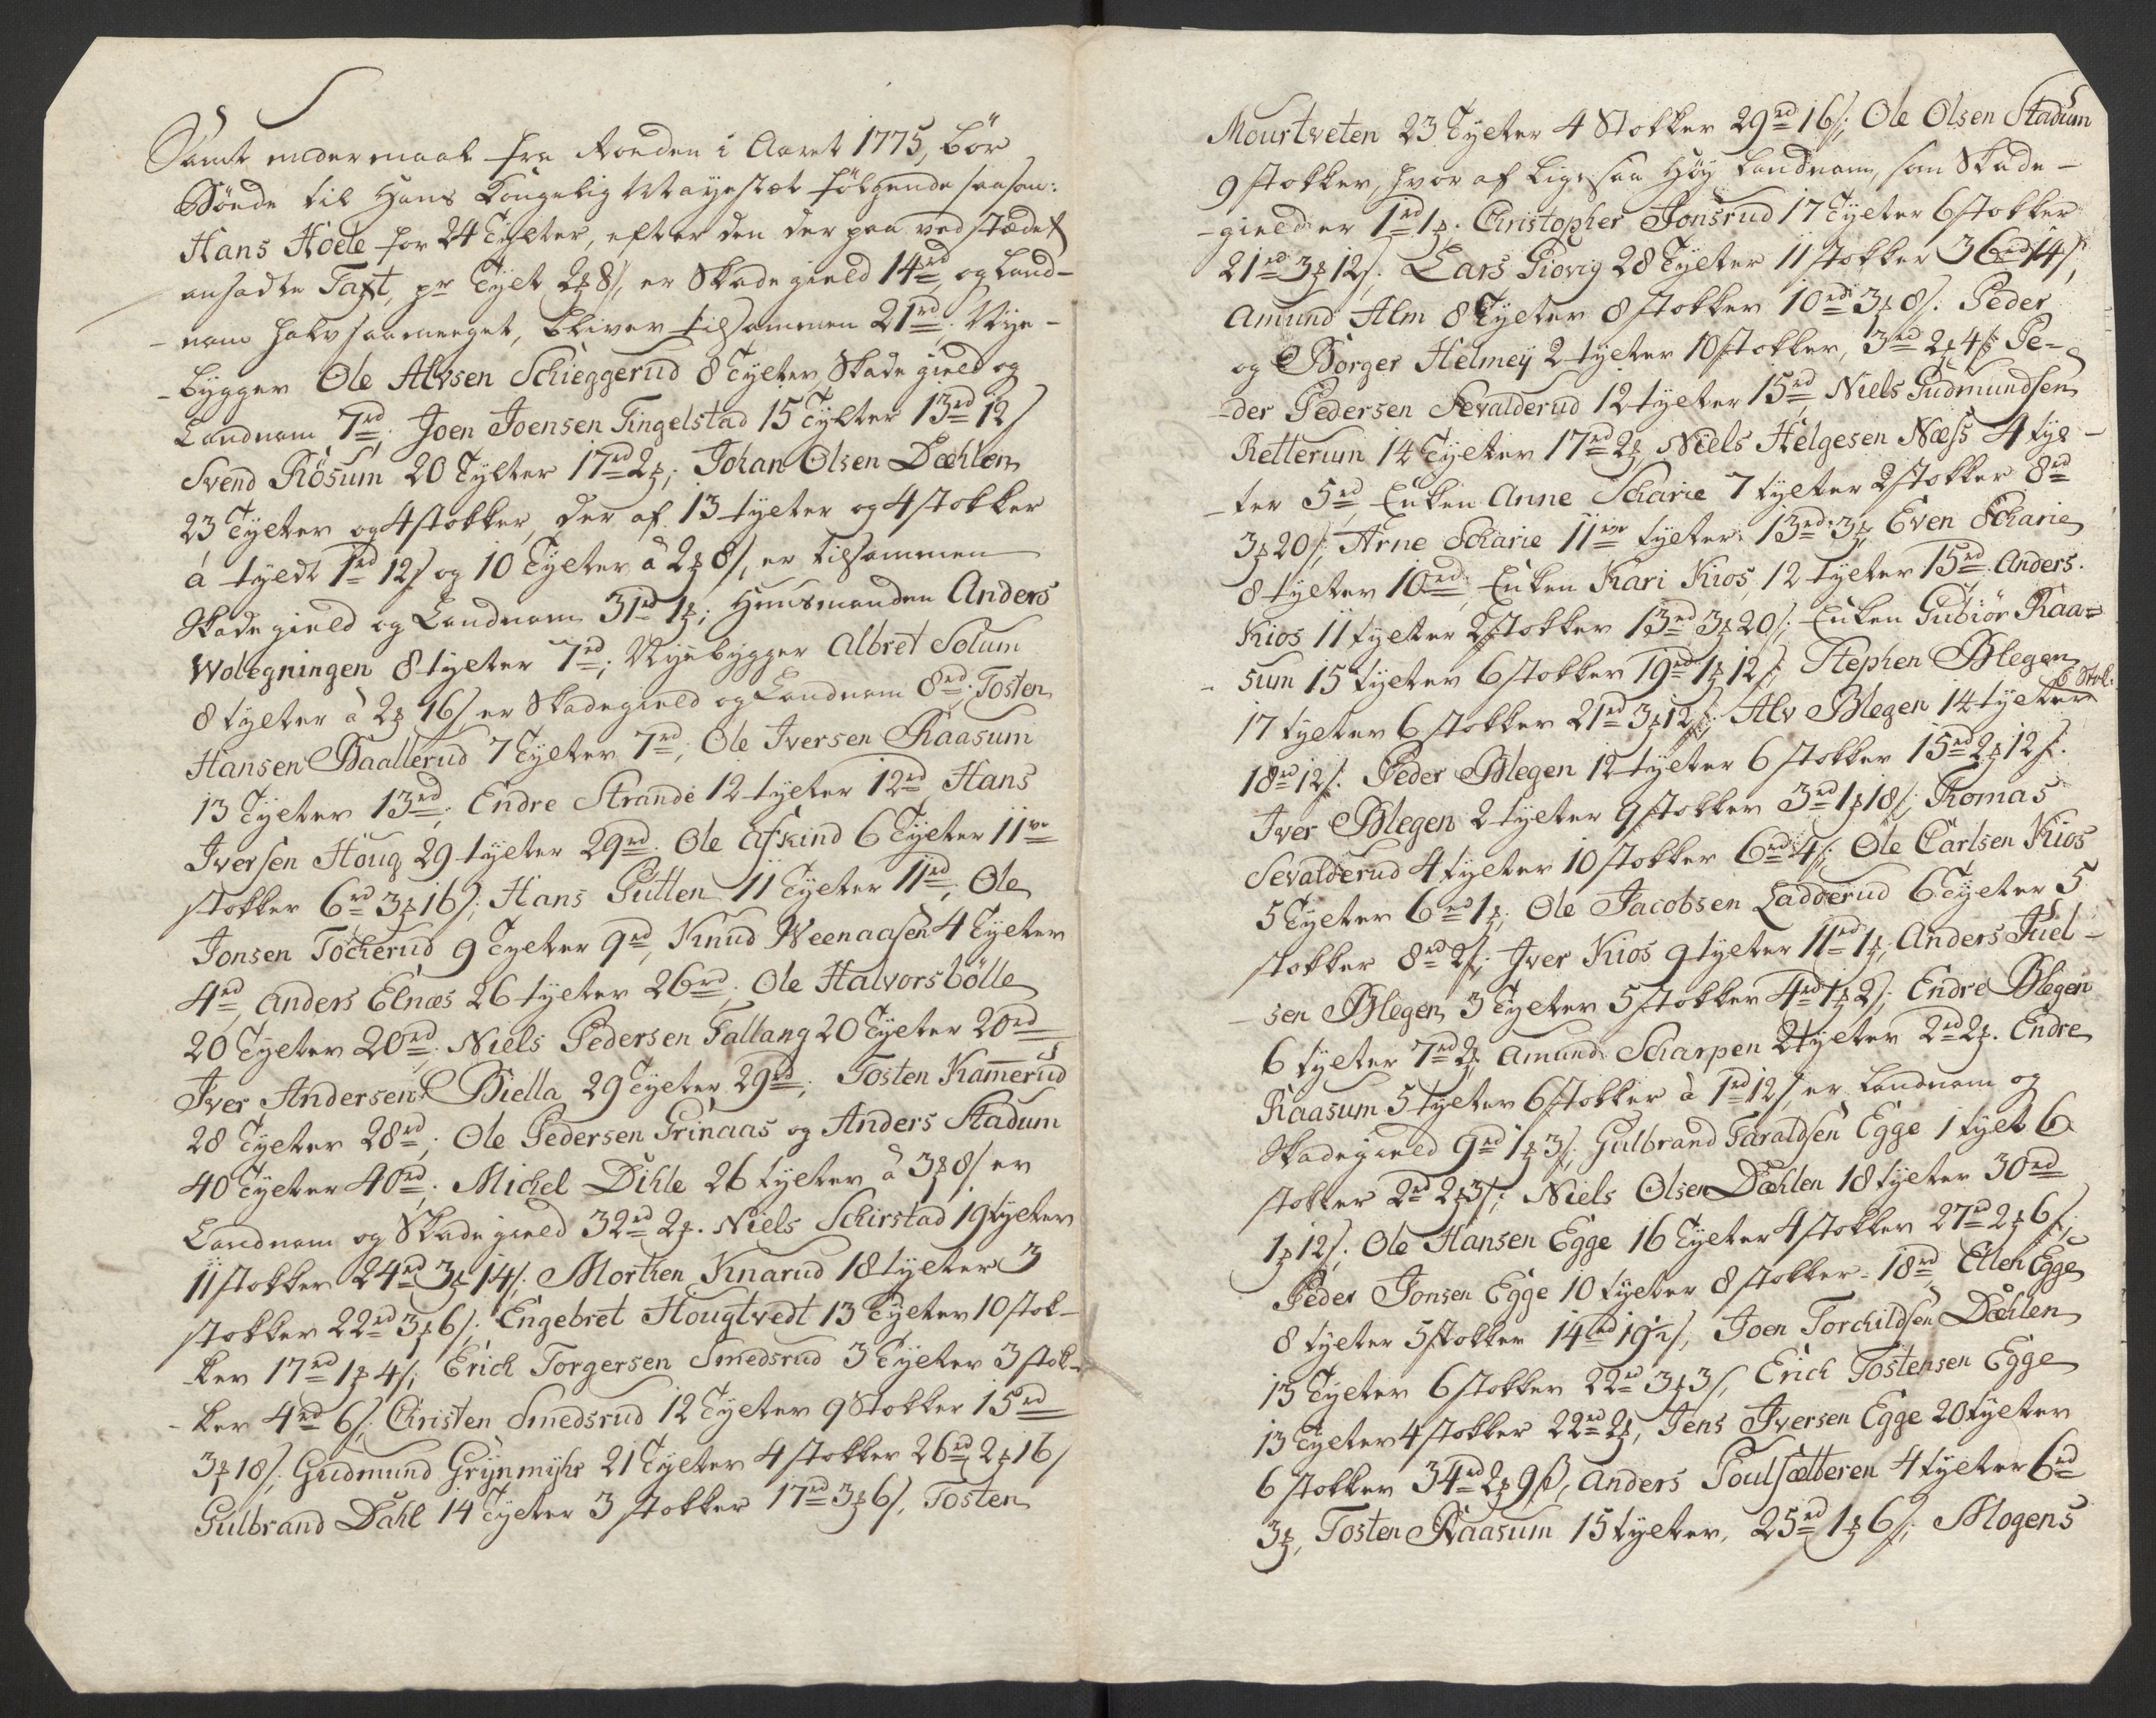 Samt undermaal fra Roeden i Aaret 1775, bör
Bönde til Hans Kongelig Mayestæt følgende saasom:
Hans Hoele for 24 Tylter, efter den der paa vedstædet
ansadte Taxt, pr Tylt 2 ₰ 8 s, er Skade gield 14 rd, og Land-
-nam halv saameeget, bliver tilsammen 21 rd. Nye-
-bygger Ole Alvsen Schieggerud 8 Tylter, Skade gield og
Landnam 7 rd; Joen Joensen Tingelstad 15 Tylter 13 rd 12 s
Svend Rösum 20 Tylter 17 rd 2 ₰; Johan Olsen Dæhlen
23 Tylter og 4 stokker, der af 13 tylter og 4 stokker
á tylt 1 rd 12 s og 10 Tylter á 2 ₰ 8 s, er tilsammen
Skade gield og Landnam 31 rd 1 ₰; Huusmanden Anders
Wolegningen 8 tylter 7 rd; Nyebygger Albret Solum
8 tylter á 2 ₰ 16 s er Skadegield og Landnam 8 rd. Tosten
Hansen Baallerud 7 Tylter 7 rd; Ole Iversen Raasum
13 Tylter 13 rd; Endre Strande 12 tylter 12 rd Hans
Iversen Houg 29 tylter 29 rd. Ole Afkind 6 Tylter 11 ve
stokker 6 rd 3 ₰ 16 s; Hans Gutten 11 Tylter 11 rd; Ole
Jonsen Tocherud 9 Tylter 9 rd, Knud Weenaasen 4 Tylter
4 rd, Anders Elnæs 26 tylter 26 rd; Ole Halvorsbölle
20 Tylter 20 rd; Niels Pedersen Fallang 20 Tylter 20 rd
Iver Andersen Biella 29 Tylter 29 rd; Tosten Kamerud
28 Tylter 28 rd; Ole Pedersen Grinaas og Anders Stadum
40 Tylter 40 rd; Michel Dihle 26 tylter á 3 ₰ 8 s er
Landnam og Skadegield 32 rd 2 ₰. Niels Schirstad 19 tylter
11 stokker 24 rd 3 ₰ 14 s; Morthen Knarud 18 tylter 3
stokker 22 rd 3 ₰ 6 s; Engebret Hougtvedt 13 Tylter 10 stok-
-ker 17 rd 1 ₰ 4 s; Erich Torgersen Smedsrud 3 Tylter 3 stok-
-ker 4 rd 6 s; Christen Smedsrud 12 Tylter 9 Stokker 15 rd
3 ₰ 18 s; Gudmund Grÿnmÿhr 21 Tylter 4 stokker 26 rd 2 ₰ 16 s
Gulbrand Dahl 14 Tylter 3 stokker 17 rd 3 ₰ 6 s, Tosten
Mourtveten 23 Tylter 4 Stokker 29 rd 16 s; Ole Olsen Stadum
9 stokker, hvor af ligesaa höy Landnam, som Skade-
-gield er 1 rd 1 ₰. Christopher Jonsrud 17 Tylter 6 stokker
21 rd 3 ₰ 12 s. Lars Giövig 28 Tylter 11 stokker 36 rd 14 s;
Amund Alm 8 Tylter 8 stokker 10 rd 3 ₰ 8 s. Peder
og Borger Helmeÿ 2 tylter 10 stokker, 3 rd 2 ₰ 4 s Pe-
-der Pedersen Sevalderud 12 tylter 15 rd, Niels Gudmundsen
Retterum 14 Tylter 17 rd 2 ₰ Niels Helgesen Næss 4 tyl-
-ter 5 rd, Enken Anne Scharie 7 tylter 2 stokker 8 rd
3 ₰ 20 s; Arne Scharie 11 ve tylter 13 rd 3 ₰, Even Scharie
8 tylter 10 rd, Enken Kari Kios, 12 tylter 15 rd. Anders
Kios 11 tylter 2 stokker 13 rd 3 ₰ 20 s; Enken Gubiör Raa-
-sum 15 tylter 6 stokker 19 rd 1 ₰ 12 s; Stephen Blegen
17 tylter 6 stokker 21 rd 3 ₰ 12 s; Alv Blegen 14 tylter 6 Stok:
18 rd 12 s. Peder Blegen 12 tylter 6 stokker 15 rd 2 ₰ 12 s.
Iver Blegen 2 tylter 9 stokker 3 rd 1 ₰ 18 s; Thomas
Sevalderud 4 tylter 10 stokker 6 rd 4 s; Ole Carlsen Kios
5 Tylter 6 rd 1 ₰; Ole Jacobsen Ladderud 6 Tylter 5
stokker 8 rd 2 s; Iver Kios 9 tylter 11 rd 1 ₰; Anders Juel-
-sen Blegen 3 Tylter 5 stokker 4 rd 1 ₰ 2 s; Endre Blegen
6 tylter 7 rd 2 ₰ Amund Scharpen 2 tylter 2 rd 2 ₰. Endre
Raasum 5 tylter 6 stokker á 1 rd 12 s, er Landnam og
Skadegield 9 rd 1 ₰ 3 s, Gulbrand Taraldsen Egge 1 tylt 6
stokker 2 rd 2 ₰ 3 s; Niels Olsen Dæhlen 18 tylter 30 rd
1 ₰ 12 s. Ole Hansen Egge 16 Tylter 4 stokker 27 rd 2 ₰ 6 s;
Peder Jonsen Egge 10 tylter 8 stokker 18 rd, Ellen Egge
8 tylter 5 stokker 14 rd 19½ s, Joen Torchildsen Dæhlen
13 Tylter 6 stokker 22 rd 3 ₰ 3 s, Erich Tostensen Egge
13 Tylter 4 stokker 22 rd 2 ₰, Jens Iversen Egge 20 tylter
6 stokker 34 rd 2 ₰ 9 ß, Anders Poulsætteren 4 tylter 6 rd
3 ₰, Tosten Raasum 15 tylter, 25 rd 1 ₰ 6 s; Mogens